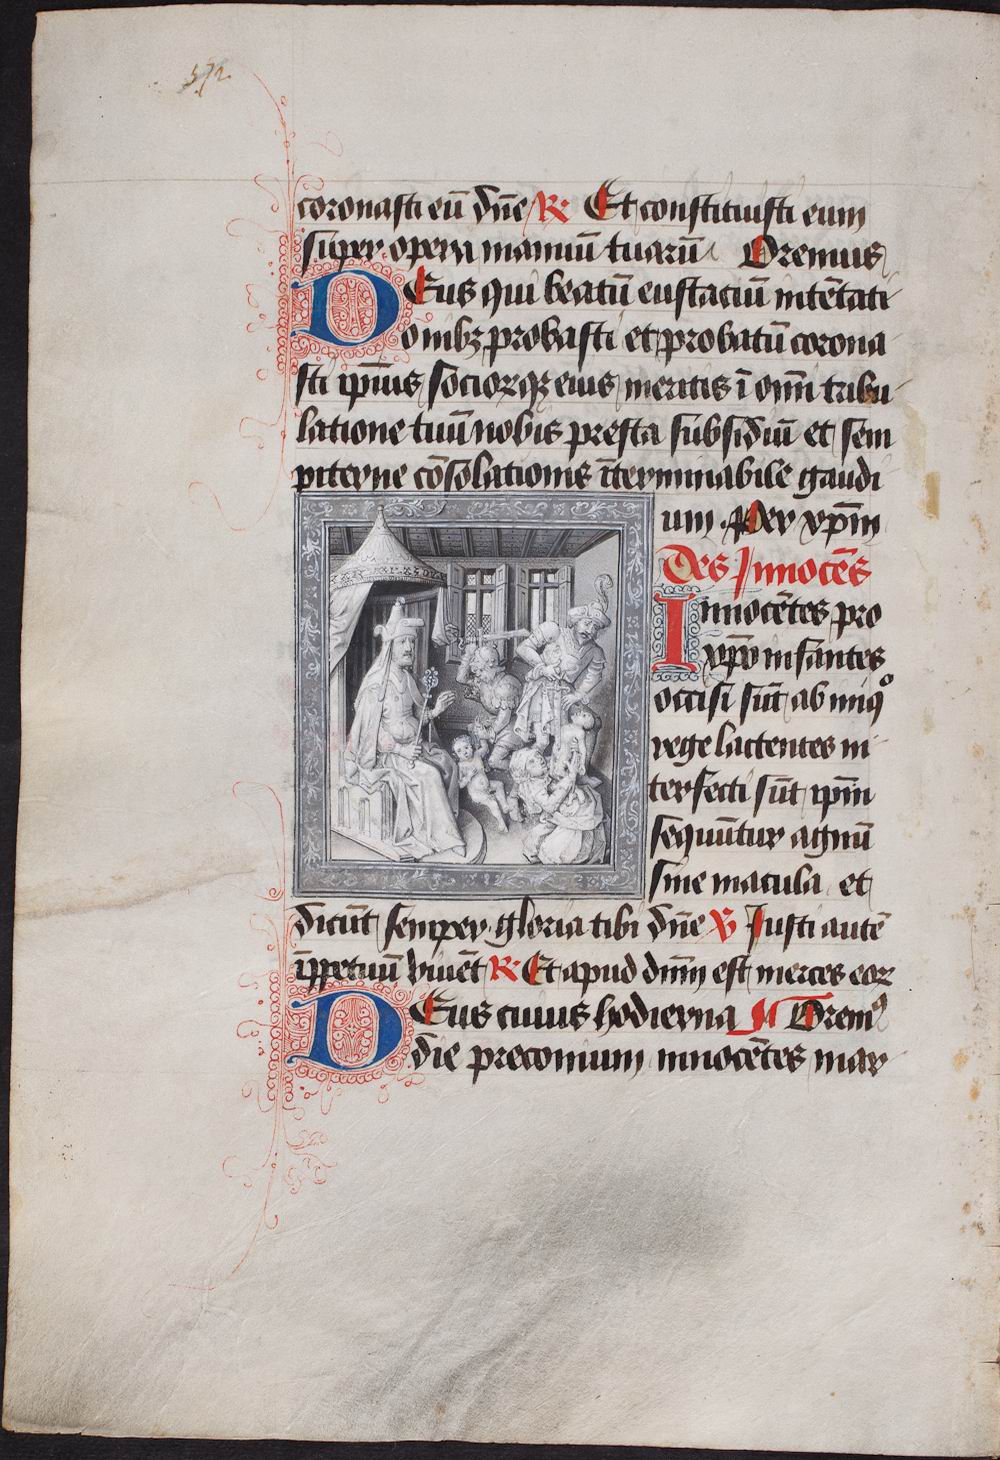 572.
coronasti eū dn̄e R̷ Et constituisti eum
super opera manuū tuarū Oremus
DEus qui beatū eustaciū intētati
onibꝫ probasti et probatū corona
sti ip̄ius sociorꝗꝫ eius meritis ī om̄i tribu
latione tuū nobis presta subsidiū et sem
piterne cōsolationis īterminabile gaudi
um Per xp̄m
Des Innocēs
Innocētes pro
xp̄o infantes
occisi sūt ab iniqͦ
rege lactentes in
terfecti sūt ip̄m
sequūtur agnū
sine macula et
dicūt semper gloria tibi dn̄e V̷ Justi autē
īꝑpetuū viuēt R̷ Et apud dm̄ est merces eoꝝ
DEus cuius hodierna Oremꝰ
die preconium innocētes mar